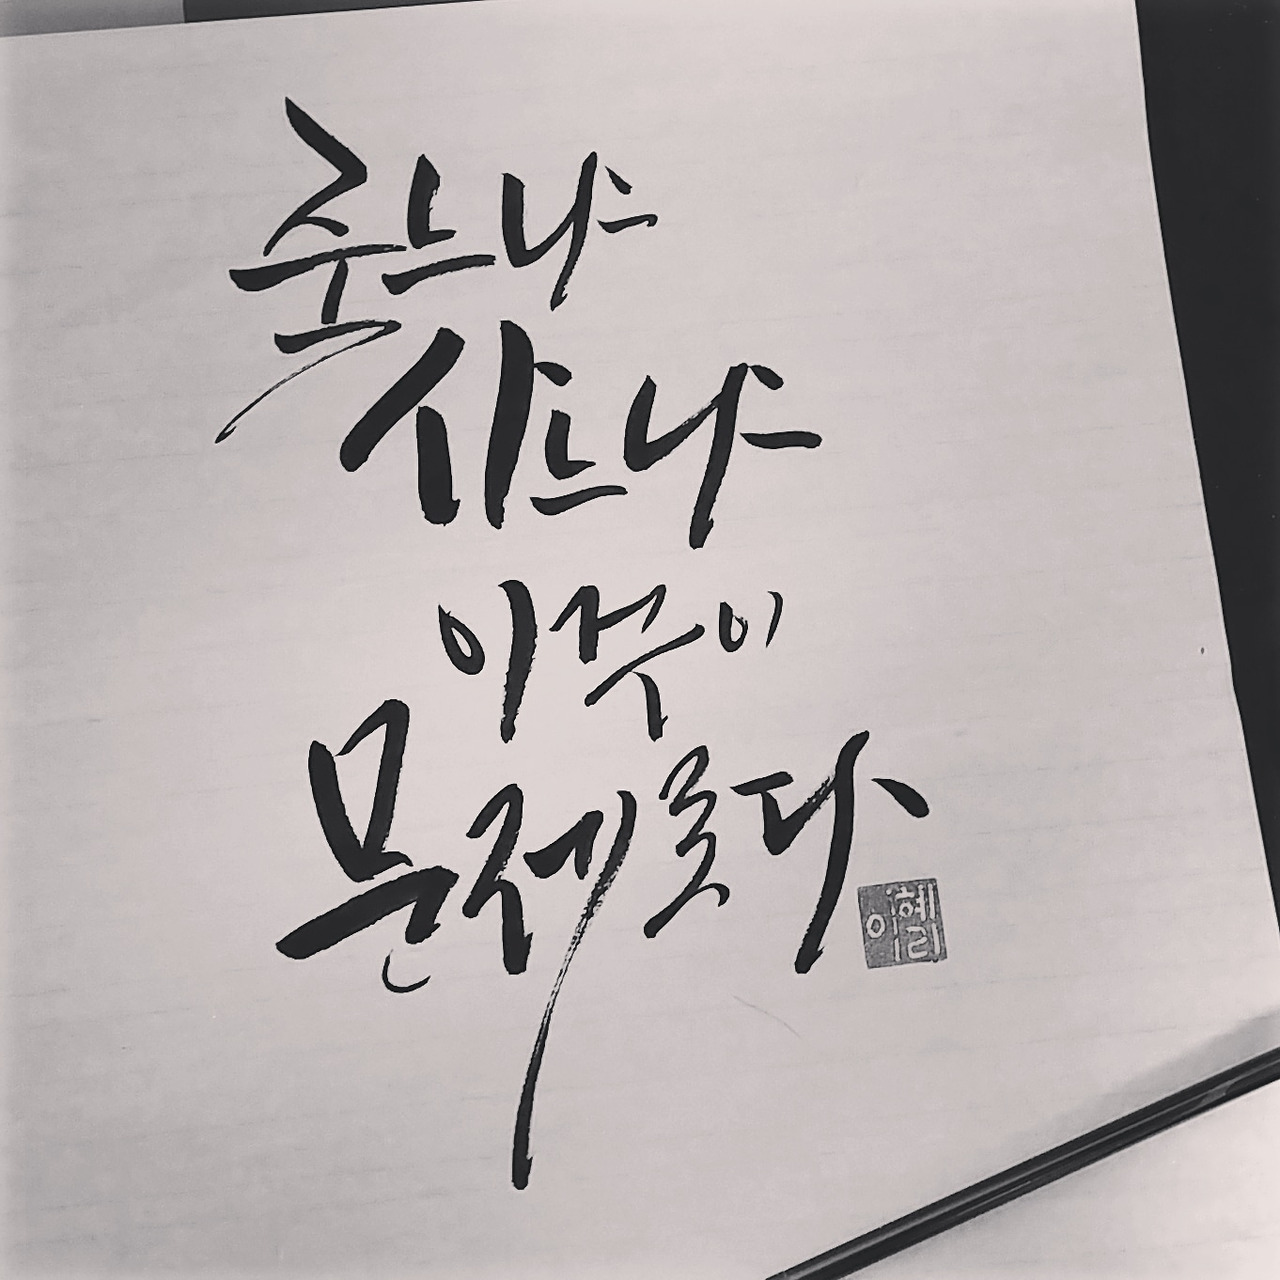 죽느냐
사느냐
이것이
문제로다
이혜리